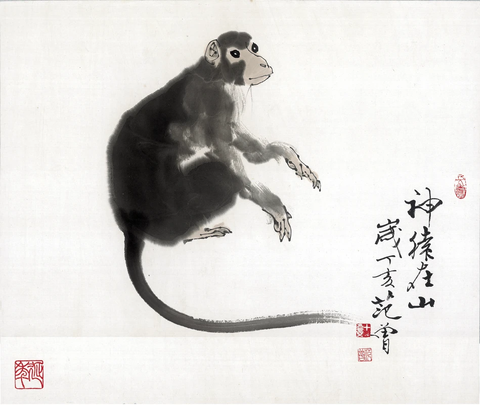 神猿在山
歲丁亥范曾